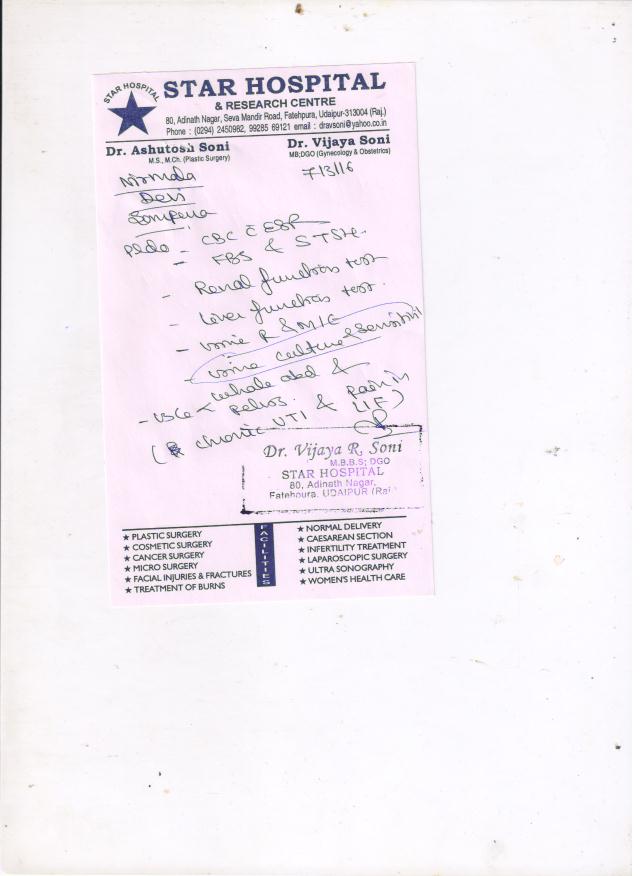 STAR HOSPITAL
STAR HOSPITAL
& RESEARCH CENTRE
80, Adinath Nagar, Seva Mandir Road, Fatehpura, Udaipur-313004 (Raj.)
Phone : (0294) 2450982, 99285 69121 email : dravsoni@yahoo.co.in
Dr. Ashutosh Soni
M.S., M.Ch. (Plastic Surgery)
Dr. Vijaya Soni
MB;DGO (Gynecology & Obstetrics)
7/3/16
Nirmala
Devi
- CBC ESR
- FBS & S TSH.
- Renal function test
- Liver function test.
- Urine R & M/E
- Urine culture & Sensitivit
whole abd &
- USG < Pelvis.
( chronic UTI & Pain in
LIF )
Dr. Vijaya R. Soni
M.B.B.S; DGO
STAR HOSPITAL
80, Adinath Nagar,
Fatehpura, UDAIPUR (Raj.)
FACILITIES
★ PLASTIC SURGERY
★ COSMETIC SURGERY
★ CANCER SURGERY
★ MICRO SURGERY
★ FACIAL INJURIES & FRACTURES
★ TREATMENT OF BURNS
★ NORMAL DELIVERY
★ CAESAREAN SECTION
★ INFERTILITY TREATMENT
★ LAPAROSCOPIC SURGERY
★ ULTRA SONOGRAPHY
★ WOMEN'S HEALTH CARE